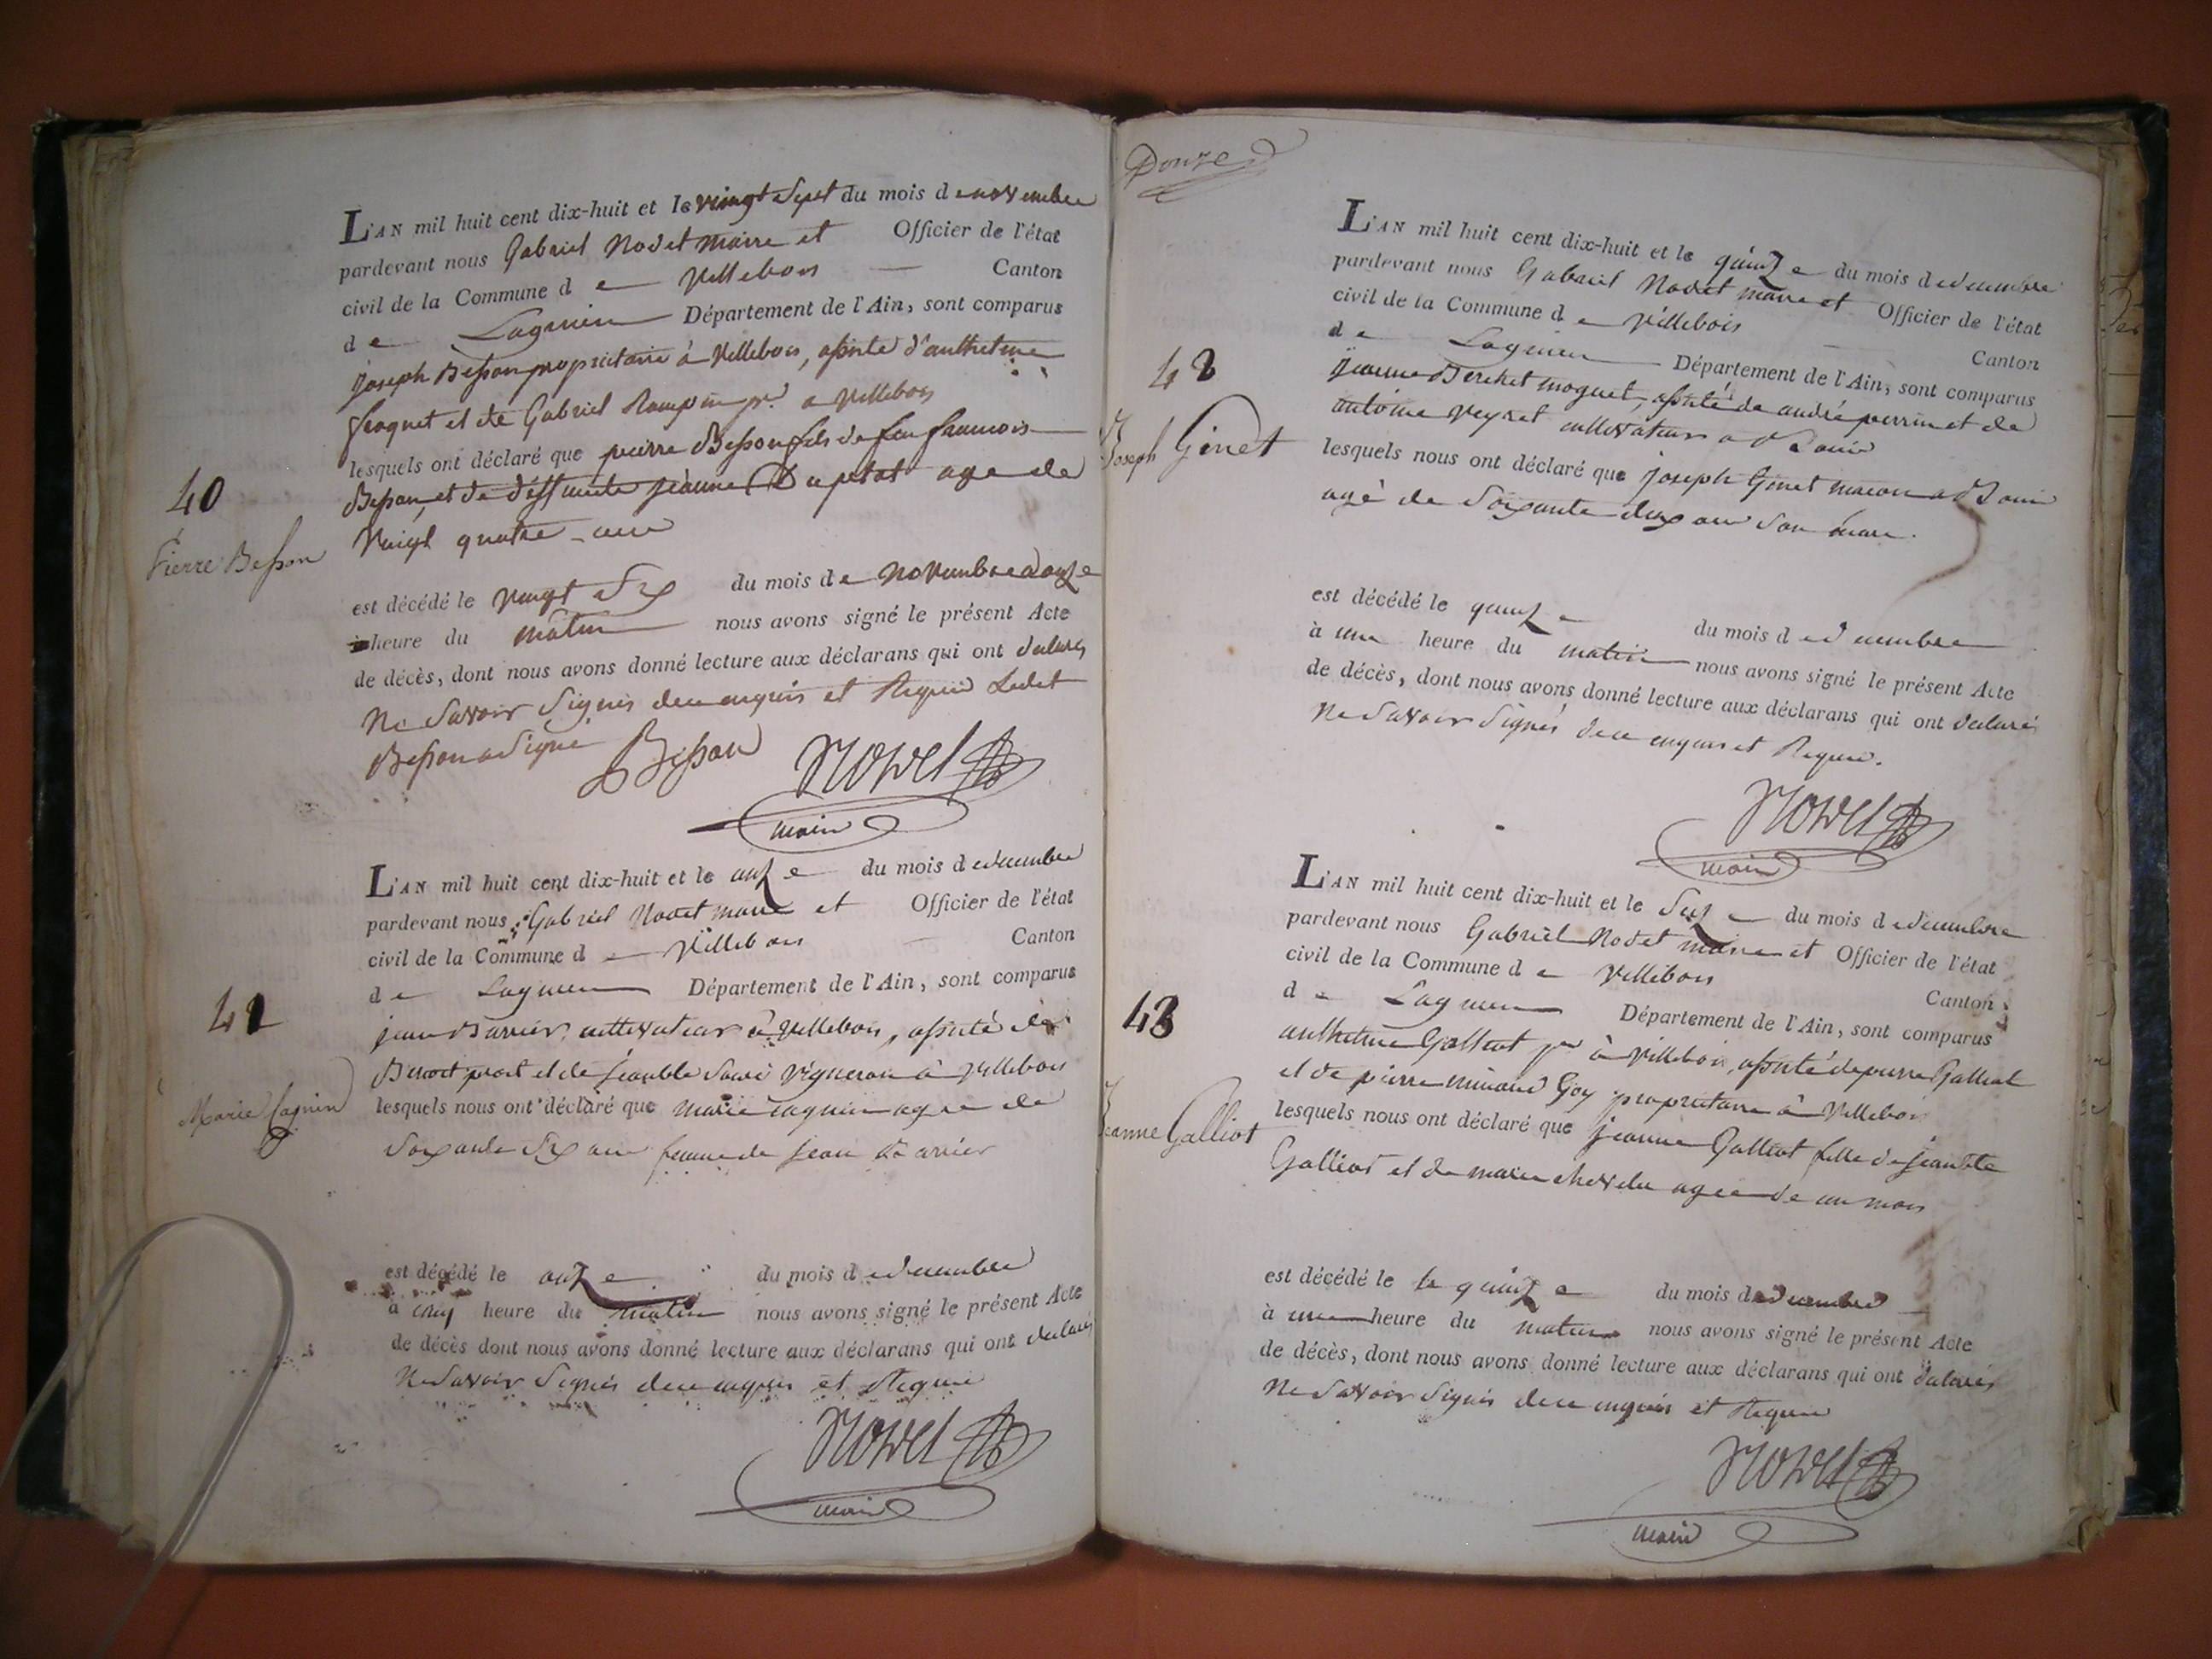 L'AN mil huit cent dix-huit et le vingt Sept du mois de novembre
pardevant nous Gabriel Nodet Maire et Officier de l'état
civil de la Commune de Villebois — Canton
de Lagnieu Département de l'Ain, sont comparus
joseph Besson propriétaire à Villebois, assisté d'anthelme
froquet et de Gabriel a Villebois
lesquels ont déclaré que pierre Besson fils de feu francois
Besson, et de deffunte jeanne Dupetat age de
Vingt quatre ans
40
Pierre Besson
est décédé le Vingt Six du mois de Novembre a onze
heure du Matin nous avons signé le présent Acte
de décès, dont nous avons donné lecture aux déclarans qui ont declarés
Ne Savoir Signés de ce enquis et Requis Ledit
Besson a Signé Besson NODET
maire
L'AN mil huit cent dix-huit et le onze du mois de decembre
pardevant nous Gabriel Nodet maire et Officier de l'état
civil de la Commune de Villebois Canton
de Lagnieu Département de l'Ain, sont comparus
jean Barrier, cultivateur à Villebois, assisté de
41
Benoit prost et de jeanbte vigneron à Villebois
Marie Cagnin
lesquels nous ont déclaré que marie cagnin agée de
Soixante Six ans femme de jean Barrier
est décédé le onze du mois de decembre
à cinq heure du matin nous avons signé le présent Acte
de décès dont nous avons donné lecture aux déclarans qui ont declarés
Ne Savoir Signés de ce enquis et Requis
NODET
maire
Douze
L'AN mil huit cent dix-huit et le quinze du mois de decembre
pardevant nous Gabriel Nodet maire et Officier de l'état
civil de la Commune de Villebois Canton
de Lagnieu Département de l'Ain, sont comparus
42
jeanne Berchet moguet, assisté de andré perrin et de
Joseph Ginet
antoine veyret cultivateurs a
lesquels nous ont déclaré que joseph Ginet macon a
agé de Soixante deux ans Son mari.
est décédé le quinze du mois de decembre
à une heure du matin nous avons signé le présent Acte
de décès, dont nous avons donné lecture aux déclarans qui ont declarés
Ne Savoir Signés de ce enquis et Requis.
NODET
maire
L'AN mil huit cent dix-huit et le Seize du mois de decembre
pardevant nous Gabriel Nodet maire et Officier de l'état
civil de la Commune de Villebois Canton
de Lagnieu Département de l'Ain, sont comparus
43
anthelme Galliot pre à Villebois, assisté de pierre Galliot
et de pierre Goy propriétaire à Villebois
Jeanne Galliot
lesquels nous ont déclaré que jeanne Galliot fille de jeanbte
Galliot et de marie chevelu agée de un mois
est décédé le le quinze du mois de decembre
à une heure du matin nous avons signé le présent Acte
de décès, dont nous avons donné lecture aux déclarans qui ont declarés
Ne Savoir Signés de ce enquis et Requis
NODET
maire